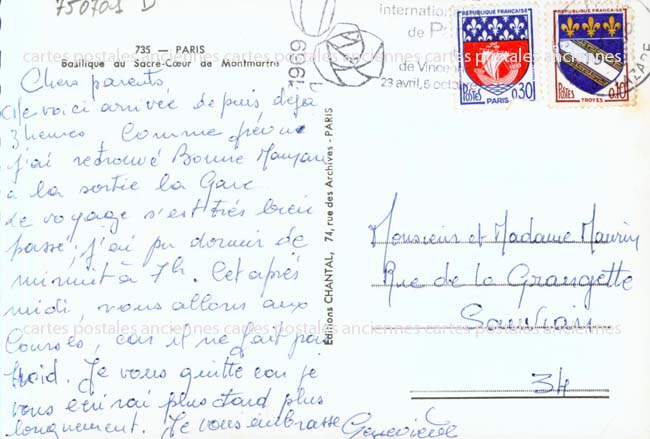 750701 D
735 — PARIS
Basilique du Sacré-Cœur de Montmartre
Chers parents
Me voici arrivée depuis déjà
3 heures. Comme prévu
j'ai retrouvé Bonne Maman
à la sortie la Gare
Le voyage s'est très bien
passé, j'ai pu dormir de
minuit à 7h. Cet après
midi, nous allons aux
Courses, car il ne fait pas
froid. Je vous quitte car je
vous écrirai plus tard plus
longuement. Je vous embrasse
Geneviève
Editions CHANTAL, 74, rue des Archives - PARIS
1969
internation
de
de Vincen
23 avril, 5 octob
REPUBLIQUE FRANÇAISE
POSTES
PARIS
0,30
REPUBLIQUE FRANÇAISE
POSTES
TROYES
0,10
Monsieur et Madame Maurin
Rue de la Grangette
Sauvian
34
cartes postales anciennes cartes postales anciennes
cartes postales anciennes cartes postales anciennes
cartes postales anciennes cartes postales anciennes